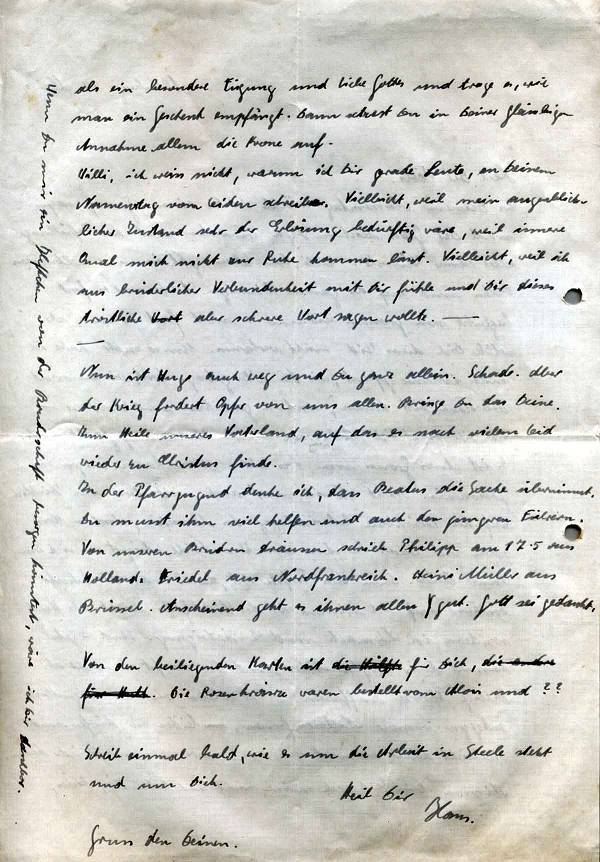 als ein besondere Fügung und Liebe Gottes und trage es, wie
man ein Geschenk empfängt. Dann setzest Du in Deiner gläubigen
Annahme allem die Krone auf.
Willi, ich weiss nicht, warum ich Dir grade heute, an Deinem
Namenstag vom Leiden schreibe. Vielleicht, weil mein augenblick-
licher Zustand sehr der Erlösung bedürftig wäre, weil innere
Qual mich nicht zur Ruhe kommen lässt. Vielleicht, weil ich
aus brüderlicher Verbundenheit mit Dir fühle und Dir dieses
tröstliche Wort aber schwere Wort sagen wollte. —
—
Nun ist Hugo auch weg und Du ganz allein. Schade. Aber
der Krieg fordert Opfer von uns allen. Bringe Du das Deine.
Zum Heile unseres Vaterland, auf das es nach vielem Leid
wieder zu Christus finde.
In der Pfarrjugend denke ich, dass Beatus die Sache übernimmt.
Du musst ihm viel helfen und auch den jüngeren Führern.
Von unseren Brüdern draussen schrieb Philipp am 17.5 aus
Holland. Friedel aus Nordfrankreich. Heini Müller aus
Brüssel. Anscheinend geht es ihnen allen gut. Gott sei gedankt.
Von den beiliegenden Karten ist die Hälfte für Dich, die andre
für. Die Rosenkränze waren bestellt vom Alois und ??
Schreib einmal bald, wie es um die Arbeit in Steele steht
und um Dich.
Heil Dir
Hans.
Gruss den Deinen.
Wenn Du mir ein Heftchen von der Bruderschaft besorgen könntest, wäre ich Dir dankbar.